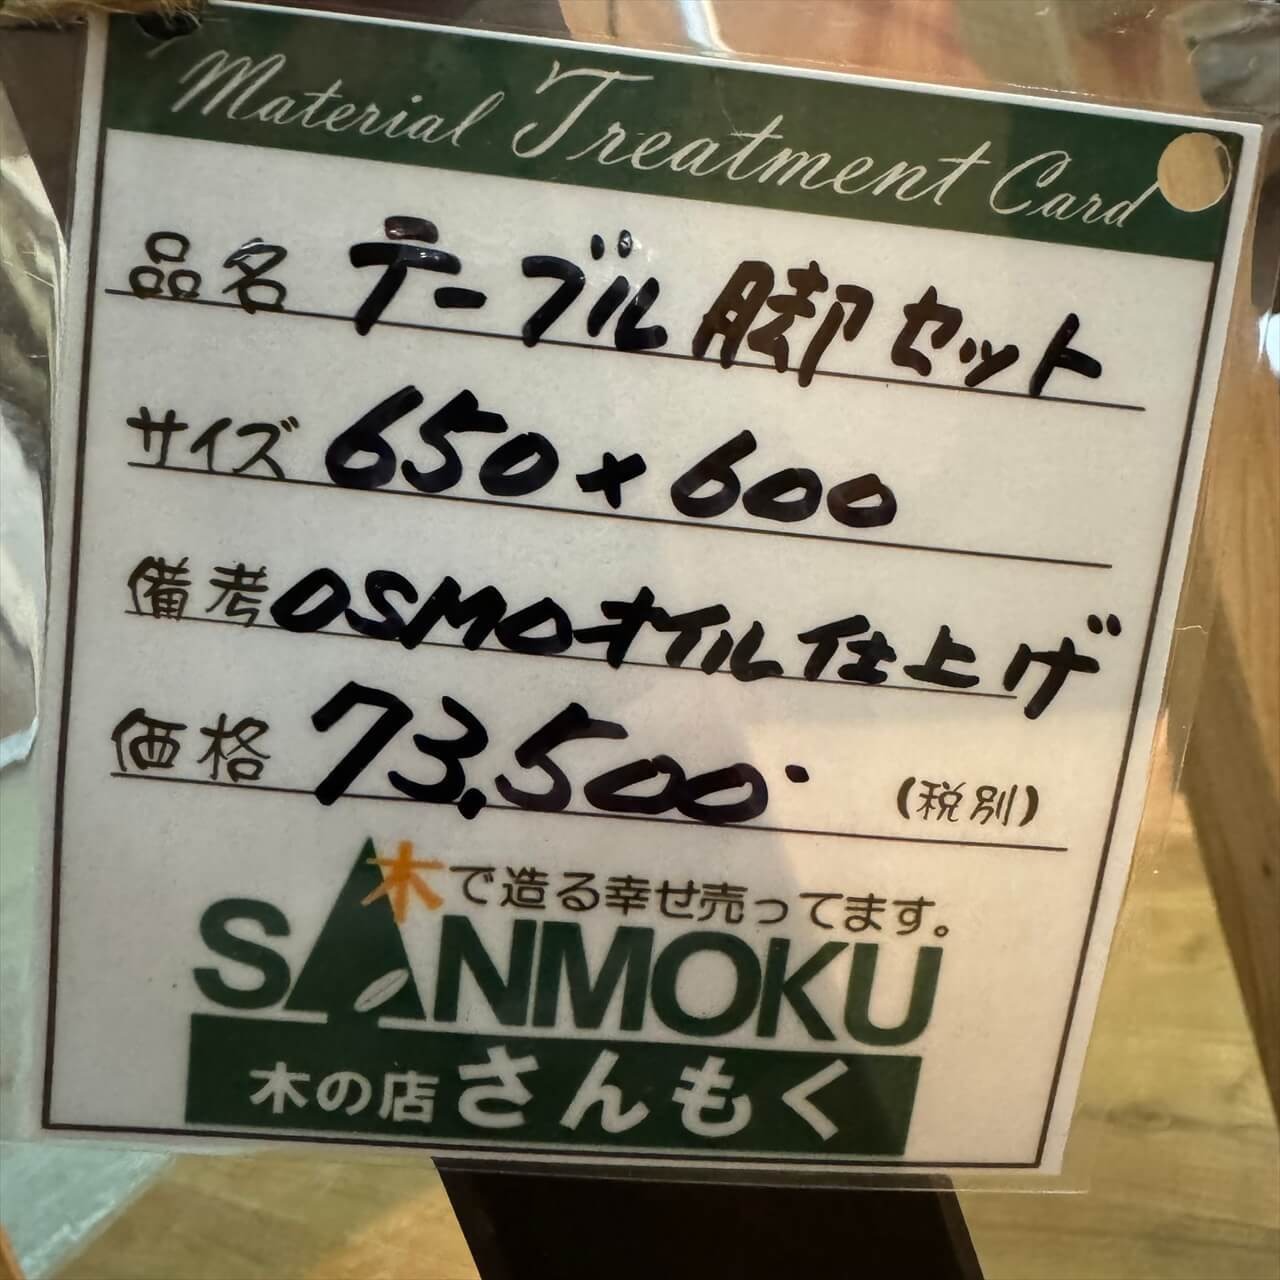 Material Treatment Card
品名 テーブル脚セット
サイズ 650×600
備考 OSMOオイル仕上げ
価格 73,500. (税別)
木で造る幸せ売ってます。
SANMOKU
木の店 さんもく